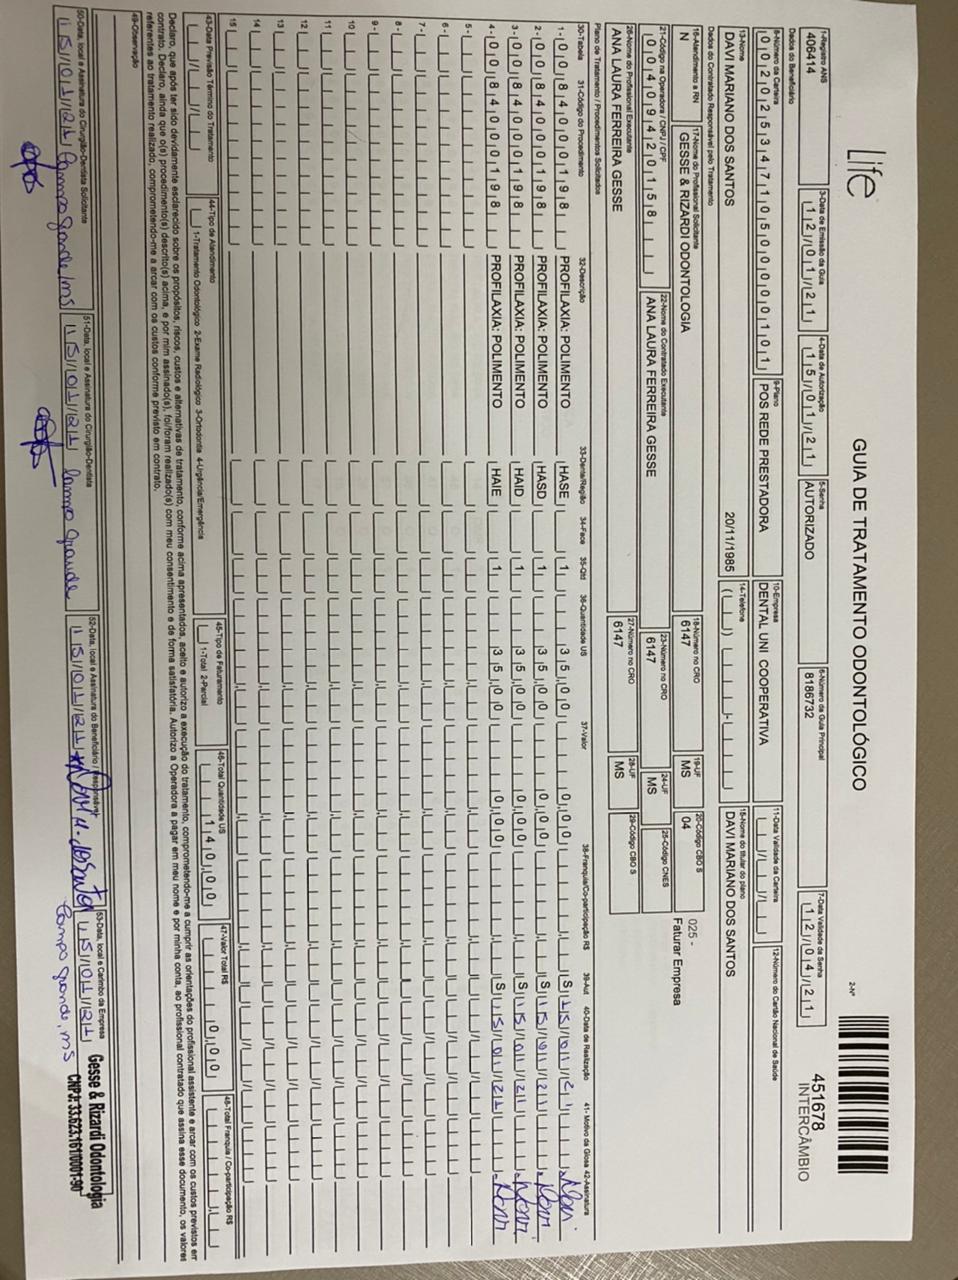 Life
GUIA DE TRATAMENTO ODONTOLÓGICO
2-Nº
451678
INTERCÂMBIO
1-Registro ANS
406414
3-Data de Emissão da Guia
12/01/21
4-Data de Autorização
15/01/21
5-Senha
AUTORIZADO
6-Número da Guia Principal
8186732
7-Data Validade da Senha
12/04/21
Dados do Beneficiário
8-Número da Carteira
00202534711050000101
9-Plano
POS REDE PRESTADORA
10-Empresa
DENTAL UNI COOPERATIVA
11-Data Validade da Carteira
12-Número do Cartão Nacional de Saúde
13-Nome
DAVI MARIANO DOS SANTOS 20/11/1985
14-Telefone
15-Nome do titular do plano
DAVI MARIANO DOS SANTOS
Dados do Contratado Responsável pelo Tratamento
16-Atendimento a RN
N
17-Nome do Profissional Solicitante
GESSE & RIZARDI ODONTOLOGIA
18-Número no CRO
6147
19-UF
MS
20-Código CBO S
04
025 -
Faturar Empresa
21-Código na Operadora / CNPJ / CPF
00409420158
22-Nome do Contratado Executante
ANA LAURA FERREIRA GESSE
23-Número no CRO
6147
24-UF
MS
25-Código CNES
26-Nome do Profissional Executante
ANA LAURA FERREIRA GESSE
27-Número no CRO
6147
28-UF
MS
29-Código CBO S
Plano de Tratamento / Procedimentos Solicitados
30-Tabela 31-Código do Procedimento 32-Descrição 33-Dente/Região 34-Face 35-Qtd 36-Quantidade US 37-Valor 38-Franquia/Co-participação R$ 39-Aut 40-Data de Realização 41- Motivo da Glosa 42-Assinatura
1- 00 84000198 PROFILAXIA: POLIMENTO HASE 1 35,00 0,00 S 15/01/21 Davi
2- 00 84000198 PROFILAXIA: POLIMENTO HASD 1 35,00 0,00 S 15/01/21 Davi
3- 00 84000198 PROFILAXIA: POLIMENTO HAID 1 35,00 0,00 S 15/01/21 Davi
4- 00 84000198 PROFILAXIA: POLIMENTO HAIE 1 35,00 0,00 S 15/01/21 Davi
5-
6-
7-
8-
9-
10
11
12
13
14
15
43-Data Previsão Término do Tratamento
44-Tipo de Atendimento
1-Tratamento Odontológico 2-Exame Radiológico 3-Ortodontia 4-Urgência/Emergência
45-Tipo de Faturamento
1-Total 2-Parcial
46-Total Quantidade US
140,00
47-Valor Total R$
0,00
48-Total Franquia / Co-participação R$
Declaro, que após ter sido devidamente esclarecido sobre os propósitos, riscos, custos e alternativas de tratamento, conforme acima apresentados, aceito e autorizo a execução do tratamento, comprometendo-me a cumprir as orientações do profissional assistente e arcar com os custos previstos em
contrato. Declaro, ainda que o(s) procedimento(s) descrito(s) acima, e por mim assinado(s), foi/foram realizado(s) com meu consentimento e de forma satisfatória. Autorizo a Operadora a pagar em meu nome e por minha conta, ao profissional contratado que assina esse documento, os valores
referentes ao tratamento realizado, comprometendo-me a arcar com os custos conforme previsto em contrato.
49-Observação
50-Data, local e Assinatura do Cirurgião-Dentista Solicitante
15/01/21 Campo grande/ms
51-Data, local e Assinatura do Cirurgião-Dentista
15/01/21 Campo Grande
52-Data, local e Assinatura do Beneficiário / Responsável
15/01/21 Davi M. dos Santos
53-Data, local e Carimbo da Empresa
15/01/21
Campo grande, ms
Gesse & Rizardi Odontologia
CNPJ: 33.623.161/0001-90